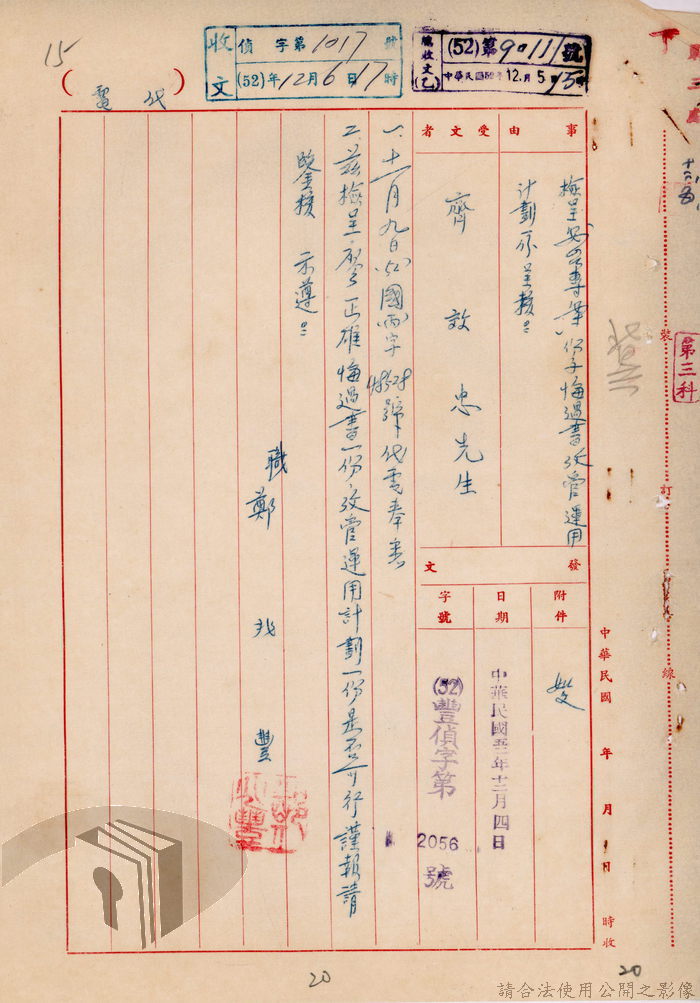 15
收文 偵字第1017號
(52)年12月6日17時
總收文(乙) (52)第9011號
中華民國52年12.月5日15時
(代電)
第三科
裝
訂
線
中華民國 年 月 日 時收
事由
檢呈 專案份子悔過書及管運用
計劃 呈核
受文者
齊效忠先生
附件
如文
發文
日期
中華民國五二年十二月四日
字號
(52)豐偵字第2056號
一、十一月九日(52)國(丙)字 號代電奉悉
二、茲檢呈廖正雄悔過書一份,及管運用計劃一份是否可行謹報請
鑒核 示遵
職 鄭兆豐
20
20
請合法使用公開之影像